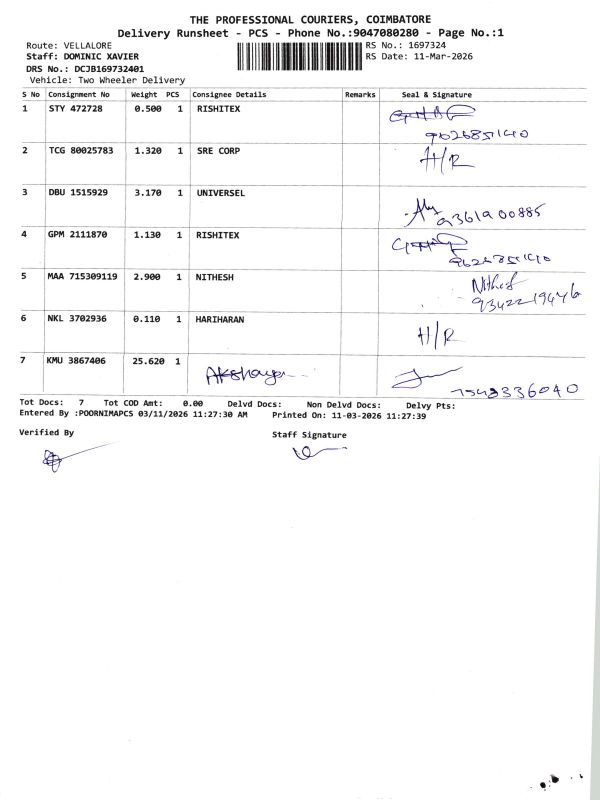 THE PROFESSIONAL COURIERS, COIMBATORE
Delivery Runsheet - PCS - Phone No.:9047080280 - Page No.:1
Route: VELLALORE
RS No.: 1697324
Staff: DOMINIC XAVIER
RS Date: 11-Mar-2026
DRS No.: DCJB169732401
Vehicle: Two Wheeler Delivery
S No Consignment No Weight PCS Consignee Details Remarks Seal & Signature
1 STY 472728 0.500 1 RISHITEX
9626851140
2 TCG 80025783 1.320 1 SRE CORP H/R
3 DBU 1515929 3.170 1 UNIVERSEL
9361900885
4 GPM 2111870 1.130 1 RISHITEX
9626851140
5 MAA 715309119 2.900 1 NITHESH Nithesh
6 NKL 3702936 0.110 1 HARIHARAN H/R
7 KMU 3867406 25.620 1 Akshaya
7548336040
Tot Docs: 7 Tot COD Amt: 0.00 Delvd Docs: Non Delvd Docs: Delvy Pts:
Entered By :POORNIMAPCS 03/11/2026 11:27:30 AM Printed On: 11-03-2026 11:27:39
Verified By Staff Signature